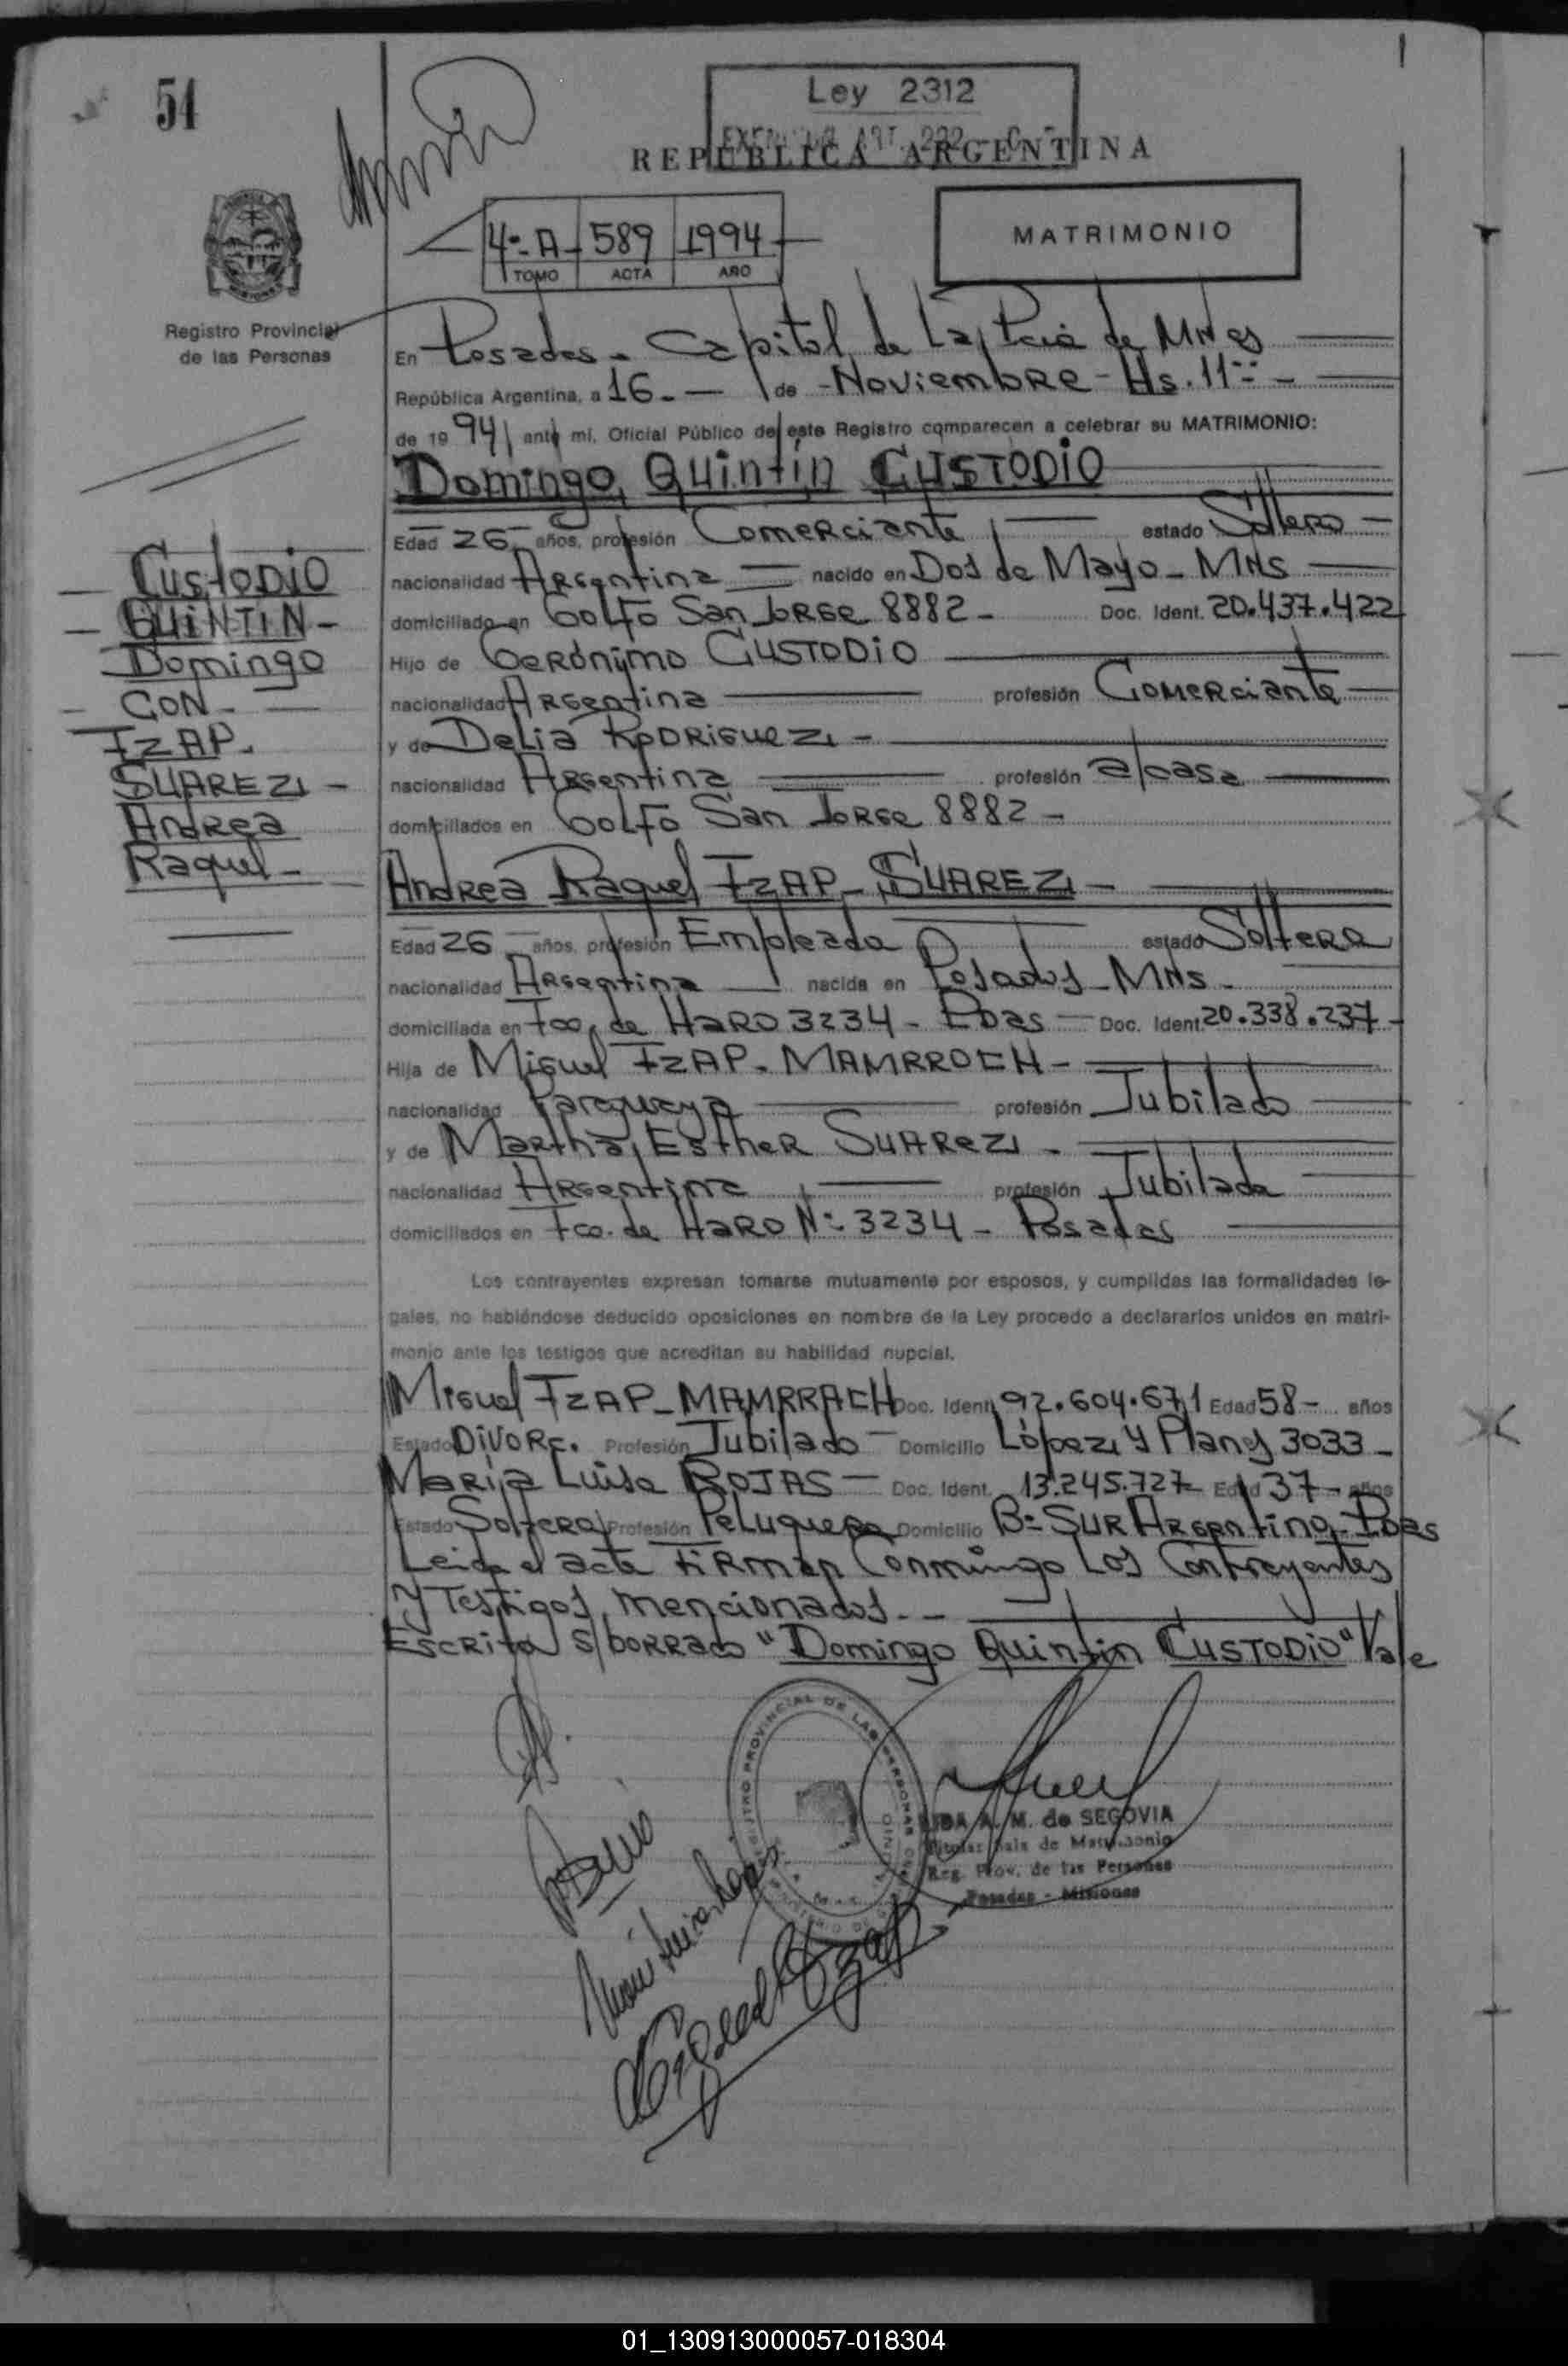 51
Ley 2312
REPUBLICA ARGENTINA
4º A 589 1994
TOMO ACTA AÑO
MATRIMONIO
Registro Provincial
de las Personas
En Posadas - Capital de La Pcia de MNes
República Argentina, a 16 - de - Noviembre - Hs. 11
de 1994 ante mí, Oficial Público de este Registro comparecen a celebrar su MATRIMONIO:
Domingo Quintin CUSTODIO
Edad 26 años, profesión Comerciante estado Soltero
nacionalidad Argentina nacido en Dos de Mayo - MNS
domiciliado en Golfo San Jorge 8882 - Doc. Ident. 20.437.422
Hijo de Gerónimo CUSTODIO
nacionalidad Argentina profesión Comerciante
y de Delia RODRIGUEZ -
nacionalidad Argentina profesión a/casa
domiciliados en Golfo San Jorge 8882 -
CUSTODIO
QUINTIN -
Domingo
CON -
IZAP -
SUAREZ -
Andrea
Raquel -
Andrea Raquel IZAP - SUAREZ -
Edad 26 años, profesión Empleada estado Soltera
nacionalidad Argentina nacida en Posadas - MNS -
domiciliada en Fco. de HARO 3234 - Pdas - Doc. Ident. 20.338.237 -
Hija de Miguel IZAP - MAMRROCH -
nacionalidad Paraguaya profesión Jubilado
y de Martha Esther SUAREZ -
nacionalidad Argentina profesión Jubilada
domiciliados en Fco. de HARO Nº 3234 - Posadas
Los contrayentes expresan tomarse mutuamente por esposos, y cumplidas las formalidades le-
gales, no habiéndose deducido oposiciones en nombre de la Ley procedo a declararlos unidos en matri-
monio ante los testigos que acreditan su habilidad nupcial.
Miguel IZAP - MAMRRACH Doc. Ident. 92.604.671 Edad 58 - años
Estado Divorc. Profesión Jubilado - Domicilio López y Planes 3033 -
María Luisa ROJAS - Doc. Ident. 13.245.727 Edad 37 - años
Estado Soltera Profesión Peluquera Domicilio Bº Sur Argentino - Pdas
Leida el acta firman Conmingo Los Contrayentes
y Testigos mencionados. -
Escrito s/borrado "Domingo Quintin CUSTODIO" Vale
REGISTRO PROVINCIAL DE LAS PERSONAS
A. M. de SEGOVIA
Titular Sala de Matrimonio
Reg. Prov. de las Personas
Posadas - Misiones
María Luisa Rojas
01_130913000057-018304